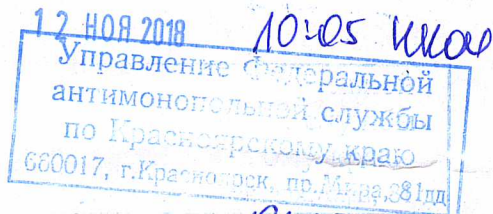 12 НОЯ 2018 10:05
Управление Федеральной
антимонопольной службы
по Красноярскому краю
660017, г.Красноярск, пр.Мира, 81